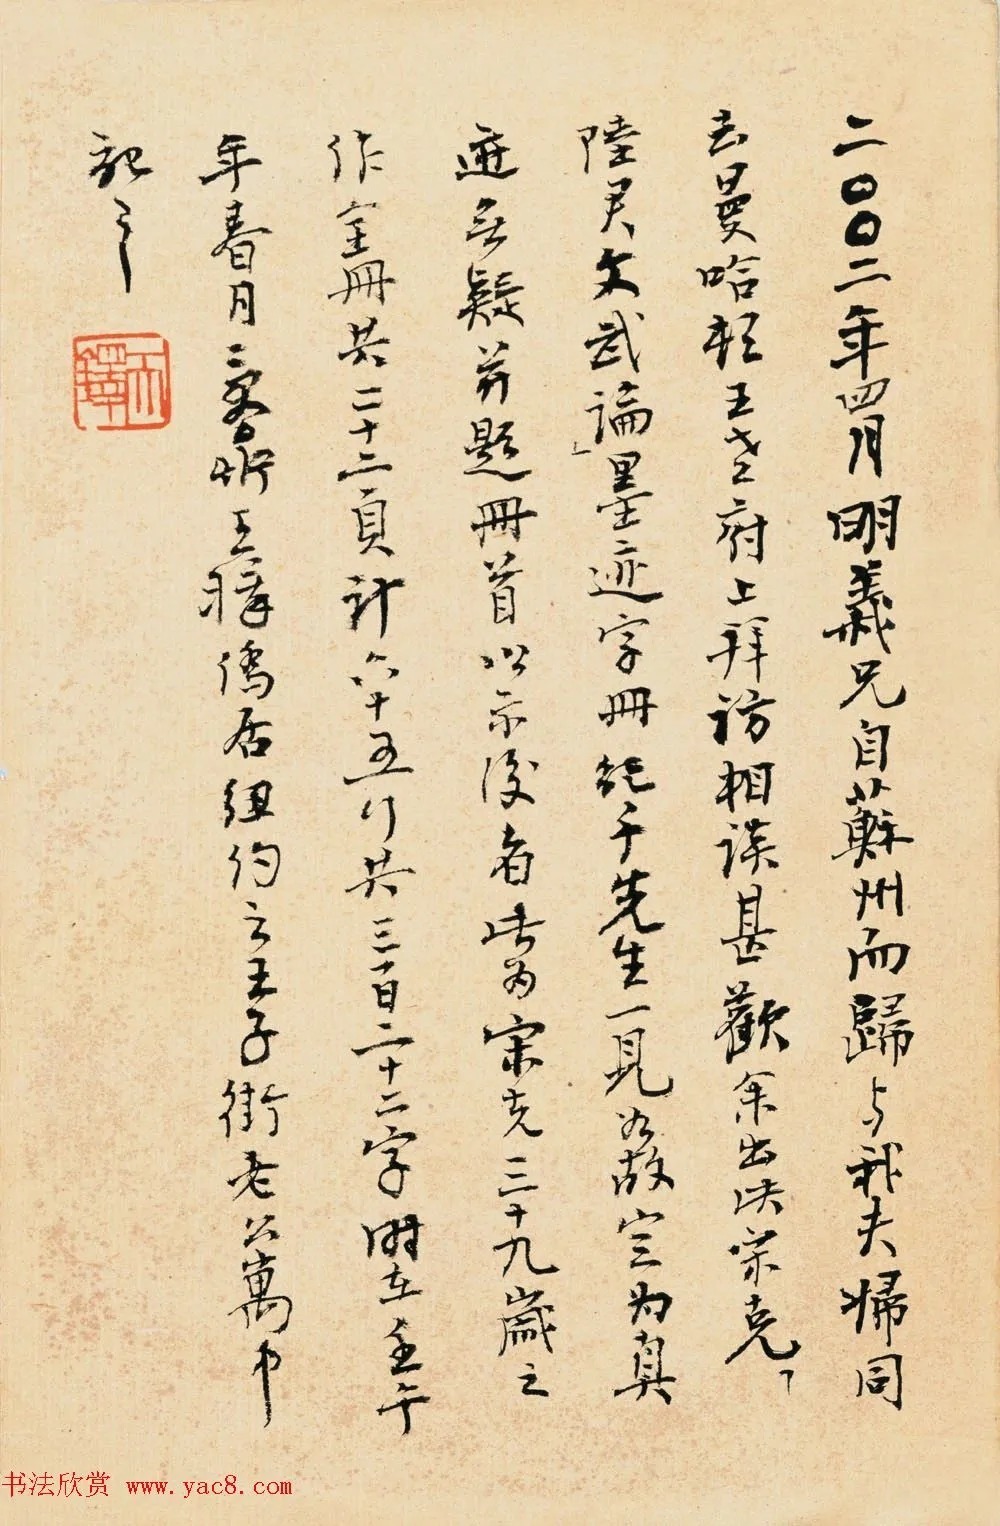 二〇〇二年四月明義兄自蘇州而歸与我夫婦同
去曼哈頓王老府上拜訪相談甚歡余出此宋克「
陸君文武論」墨迹字冊己千先生一見如故定为真
迹無疑并題冊首以示後者此为宋克三十九歲之
作全冊共二十二頁計六十五行共三百二十二字時在壬午
年春月王鐸僑居紐約之王子街老公寓中
記之
王鐸
书法欣赏 www.yac8.com